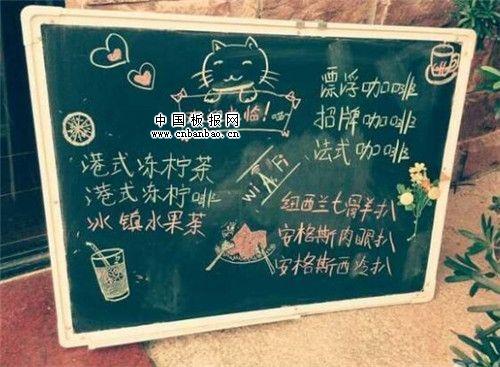 临!
中国板报网
www.cnbanbao.cn
漂浮咖啡
招牌咖啡
法式咖啡
港式冻柠茶
港式冻柠啡
冰镇水果茶
Wi Fi
纽西兰七骨羊扒
安格斯肉眼扒
安格斯西冷扒